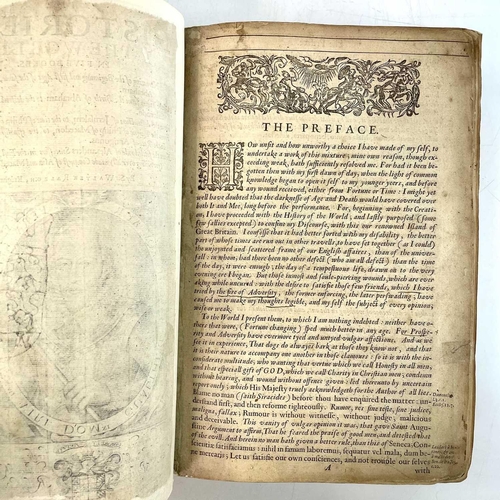 THE PREFACE.
HOw unfit and how unworthy a choice I have made of my self, to
undertake a work of this mixture, mine own reason, though ex-
ceeding weak, hath sufficiently resolved me. For had it been be-
gotten then with my first dawn of day, when the light of common
knowledge began to open it self to my younger years, and before
any wound received, either from Fortune or Time: I might yet
well have doubted that the darknesse of Age and Death would have covered over
both It and Me, long before the performance. For, beginning with the Creati-
on, I have proceeded with the History of the World; and lastly purposed (some
few sallies excepted) to confine my Discourse, with this our renowned Island of
Great Britain. I confesse that it had better sorted with my disability, the better
part of whose times are run out in other travells, to have set together (as I could)
the unjoynted and scattered frame of our English affaires, than of the univer-
sall: in whom, had there been no other defect (who am all defect) than the time
of the day, it were enough; the day of a tempestuous life, drawn on to the very
evening ere I began. But those inmost and soule-piercing wounds, which are ever
aking while uncured: with the desire to satisfie those few friends, which I have
tried by the fire of Adversity, the former enforcing, the later perswading; have
caused me to make my thoughts legible, and my self the subject of every opinion,
wise or weak.
To the World I present them, to which I am nothing indebted: neither have o-
thers that were, (Fortune changing) sped much better in any age. For Prospe-
rity and Adversity have evermore tyed and untyed vulgar affections. And as we
see it in experience, That dogs do alwayes bark at those they know not, and that
it is their nature to accompany one another in those clamours: so is it with the in-
considerate multitude; who wanting that vertue which we call Honesty in all men,
and that especiall gift of GOD, which we call Charity in Christian men; condemn
without hearing, and wound without offence given: led thereunto by uncertain
report only; which His Majesty truly acknowledgeth for the Author of all lies.
Blame no man (saith Siracides) before thou have enquired the matter: un-
derstand first, and then reforme righteously. Rumor, res sine teste, sine judice,
maligna, fallax; Rumour is without witnesse, without judge, malicious
and deceivable. This vanity of vulgar opinion it was, that gave Saint Augu-
stine Argument to affirm, That he feared the praise of good men, and detested that
of the evill. And herein no man hath given a better rule, than this of Seneca. Con-
scientiæ satisfaciamus: nihil in famam laboremus, sequatur vel mala, dum be-
ne merearis; Let us satisfie our own consciences, and not trouble our selves
A
with